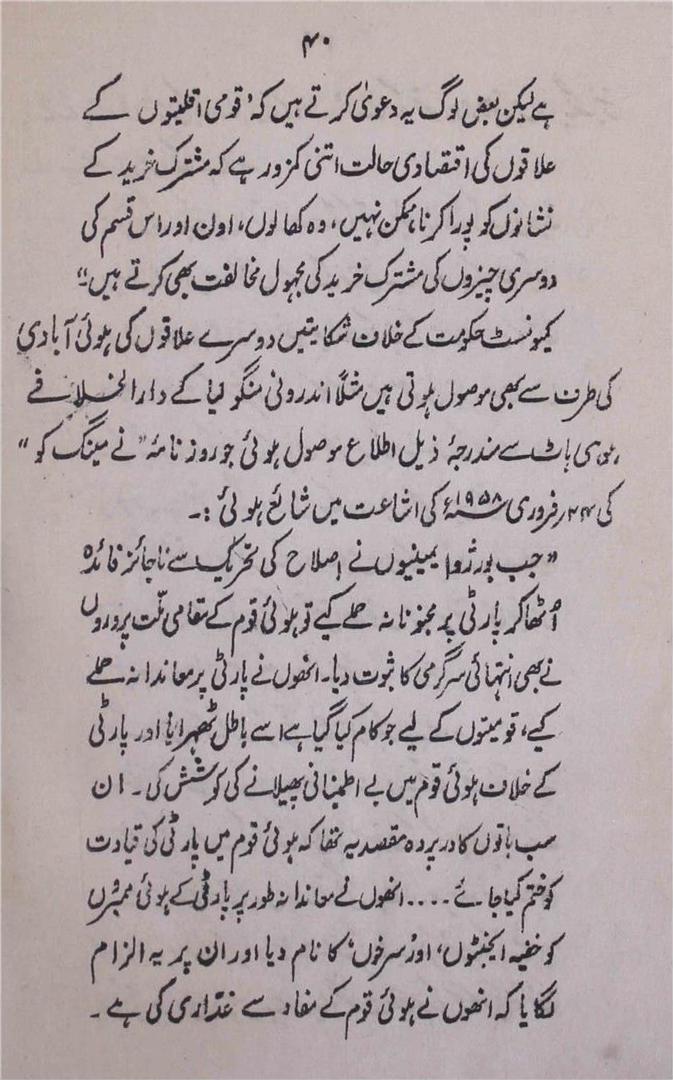 ۴۰
ہے لیکن بعض لوگ یہ دعویٰ کرتے ہیں کہ ' قومی اقلیتوں کے
علاقوں کی اقتصادی حالت اتنی کمزور ہے کہ مشترک خرید کے
نشانوں کو پورا کرنا ممکن نہیں، وہ کھالوں، اون اور اس قسم کی
دوسری چیزوں کی مشترک خرید کی مجہول مخالفت بھی کرتے ہیں۔"
کمیونسٹ حکومت کے خلاف شکایتیں دوسرے علاقوں کی ہلوئی آبادی
کی طرف سے بھی موصول ہوتی ہیں مثلاً اندرونی منگولیا کے دارالخلافے
ہوہی ہاٹ سے مندرجۂ ذیل اطلاع موصول ہوئی جو روزنامہ "نے مینگ کو"
کی ۲۴ر فروری ۱۹۵۸ء کی اشاعت میں شائع ہوئی :۔
"جب بورژوا یمینیوں نے اصلاح کی تحریک سے ناجائز فائدہ
اُٹھا کر پارٹی پر مجنونانہ حملے کیے تو ہلوئی قوم کے مقامی ملّت پروروں
نے بھی انتہائی سرگرمی کا ثبوت دیا۔ انھوں نے پارٹی پر معاندانہ حملے
کیے، قومیتوں کے لیے جو کام کیا گیا ہے اسے باطل ٹھہرایا اور پارٹی
کے خلاف ہلوئی قوم میں بے اطمینانی پھیلانے کی کوشش کی۔ ان
سب باتوں کا درپردہ مقصد یہ تھا کہ ہلوئی قوم میں پارٹی کی قیادت
کو ختم کیا جائے.... انھوں نے معاندانہ طور پر پارٹی کے ہلوئی ممبروں
کو خفیہ ایجنٹوں، اور 'سرخوں' کا نام دیا اور ان پر یہ الزام
لگایا کہ انھوں نے ہلوئی قوم کے مفاد سے غدّاری کی ہے۔